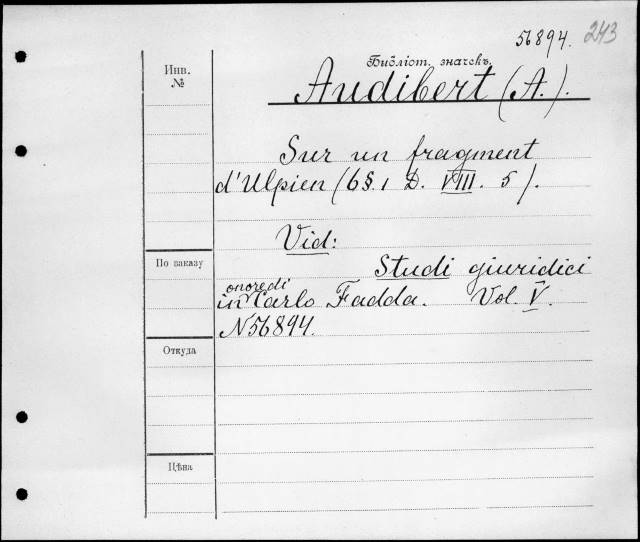 56894. 243
Библіот. значекъ.
Инв.
№
Audibert (A.).
Sur un fragment
d'Ulpien (6 §. 1 D. VIII. 5).
Vid:
По заказу
Studi giuridici
onoredi
in Carlo Fadda. Vol. V.
N 56894.
Откуда
Цѣна